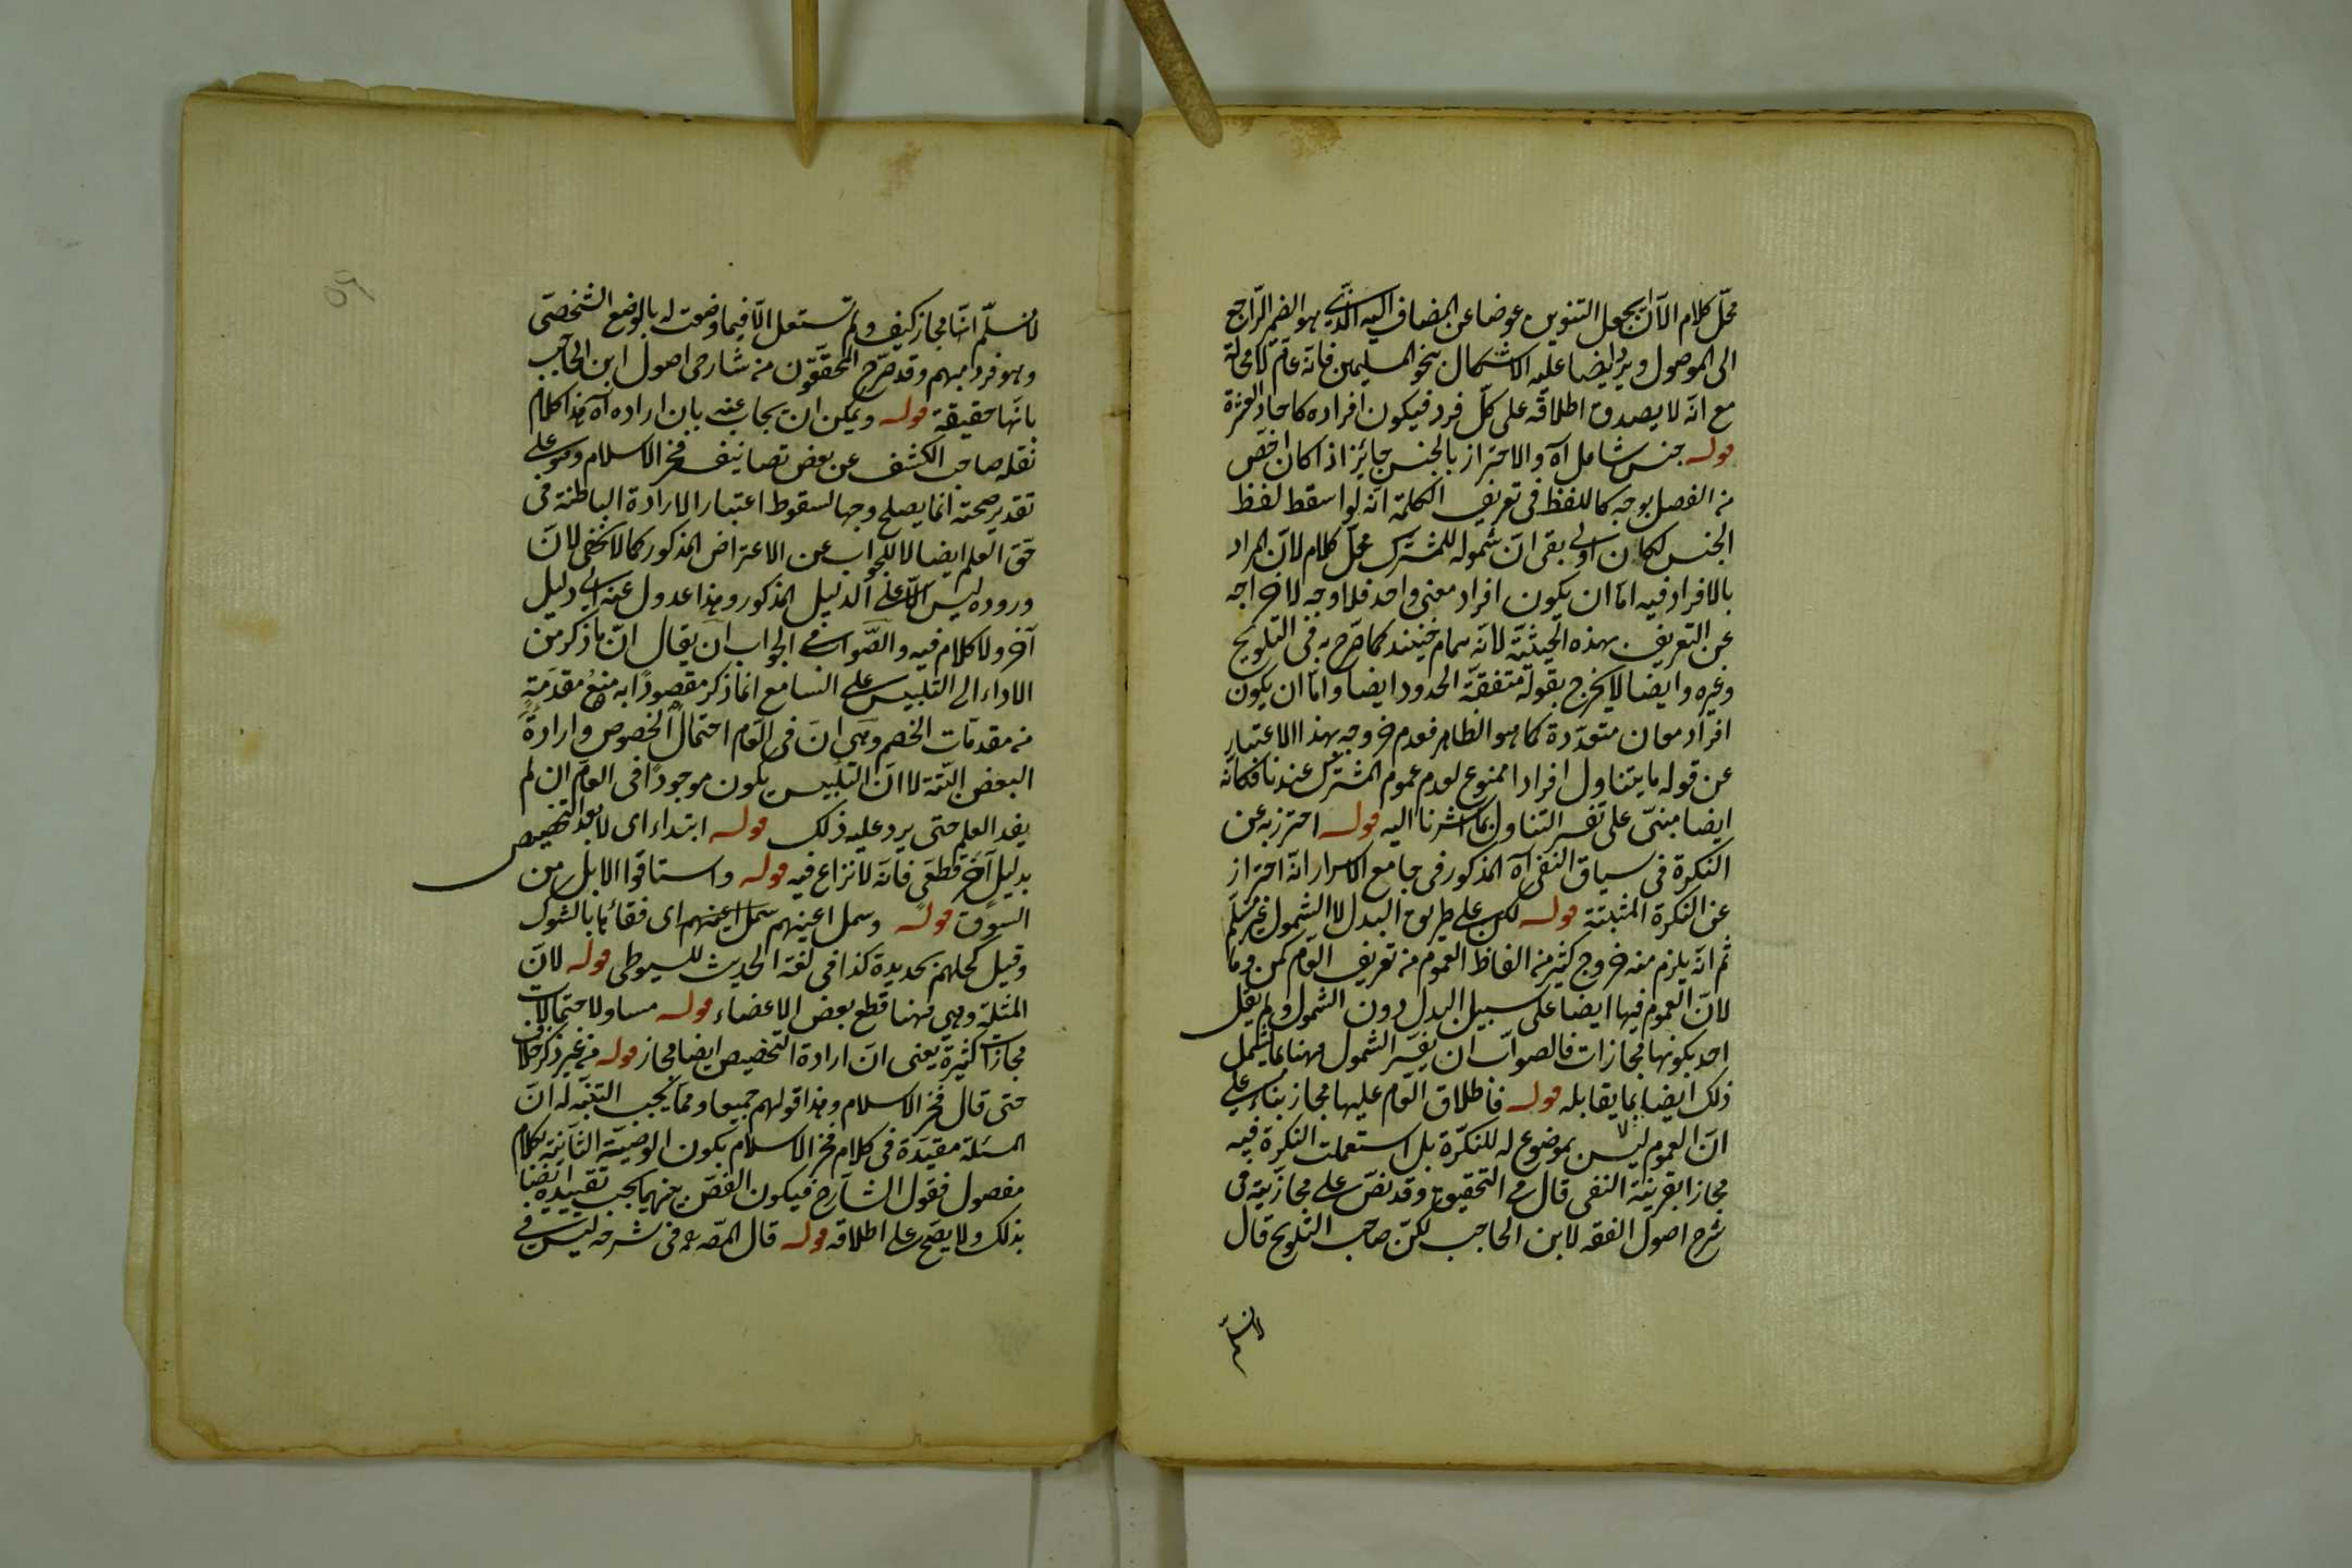 محل كلام الا ان يجعل التنوين عوضا عن المضاف اليه الذي هو الضمير الراجع
الى الموصول ويرد ايضا عليه الاشكال بنحو المسلمين فانه عام لا محالة
مع انه لا يصدق اطلاقه على كل فرد فيكون افراده كاحاد العشرة
قوله جنس شامل اه والاحتراز بالجنس جايز اذا كان اخص
من الفصل بوجه كاللفظ فى تعريف الكلمة انه لو اسقط لفظ
الجنس لكان اولى بقى ان شموله للمشترك محل كلام لان المراد
بالافراد فيه اما ان يكون افراد معنى واحد فلا وجه لاخراجه
عن التعريف بهذه الحيثية لانه عام حينئذ كما صرح به فى التلويح
وغيره وايضا لا يخرج بقوله متفقة الحدود ايضا واما ان يكون
افراد معان متعددة كما هو الظاهر فعدم خروجه بهذا الاعتبار
عن قوله ما يتناول افرادا ممنوع لعدم عموم المشترك عندنا فكانه
ايضا مبنى على تفسير التناول بما اشرنا اليه قوله احترز به عن
النكرة فى سياق النفى اه المذكور فى جامع الاسرار انه احتراز
عن النكرة المثبتة قوله لكن على طريق البدل لا الشمول غير مسلم
ثم انه يلزم منه خروج كثير من الفاظ العموم من تعريف العام كمن وما
لان العموم فيها ايضا على سبيل البدل دون الشمول ولم يقل
احد بكونها مجازات فالصواب ان يفسر الشمول ههنا بما يشمل
ذلك ايضا بما يقابله قوله فاطلاق العام عليها مجاز بناء على
ان العموم ليس بموضوع له للنكرة بل استعملت النكرة فيه
مجازا بقرينة النفى قال فى التحقيق وقد نص على مجازيته فى
شرح اصول الفقه لابن الحاجب لكن صاحب التلويح قال
لا نسلم
لا نسلم انها مجاز كيف ولم تستعمل الا فيما وضعت له بالوضع الشخصى
وهو فرد مبهم وقد صرح المحققون من شارحى اصول ابن الحاجب
بانها حقيقة قوله ويمكن ان يجاب عنه بان اراده اه هذا كلام
نقله صاحب الكشف عن بعض تصانيف فخر الاسلام وهو على
تقدير صحته انما يصلح وجها لسقوط اعتبار الارادة الباطنة فى
حق العلم ايضا لا للجواب عن الاعتراض المذكور كما لا يخفى لان
وروده ليس الا على الدليل المذكور وهذا عدول عنه الى دليل
آخر ولا كلام فيه والصواب فى الجواب ان يقال ان ما ذكر من
الاداء الى التلبيس على السامع انما ذكر مقصودا به منع مقدمة
من مقدمات الخصم وهى ان فى العام احتمال الخصوص وارادة
البعض البتة لا ان التلبيس يكون موجودا فى العام ان لم
يفد العلم حتى يرد عليه ذلك قوله ابتداء اى لا بعد التخصيص
بدليل آخر قطعى فانه لا نزاع فيه قوله واستاقوا الابل من
السوق قوله وسمل اعينهم سمل اعينهم اى فقأها بالشوك
وقيل كحلهم بحديدة كذا فى لغة الحديث للسيوطى قوله لان
المثلة وهى ههنا قطع بعض الاعضاء قوله مساو لاحتمالات
مجازات كثيرة يعنى ان ارادة التخصيص ايضا مجاز قوله من غير ذكر خلاف
حتى قال فخر الاسلام وهذا قولهم جميعا ومما يجب التنبه له ان
المسئلة مقيدة فى كلام فخر الاسلام بكون الوصية الثانية بكلام
مفصول فقول الشارح فيكون الفص بينهما يجب تقييده ايضا
بذلك ولا يصح على اطلاقه قوله قال المصـ فى شرحه ليس فى